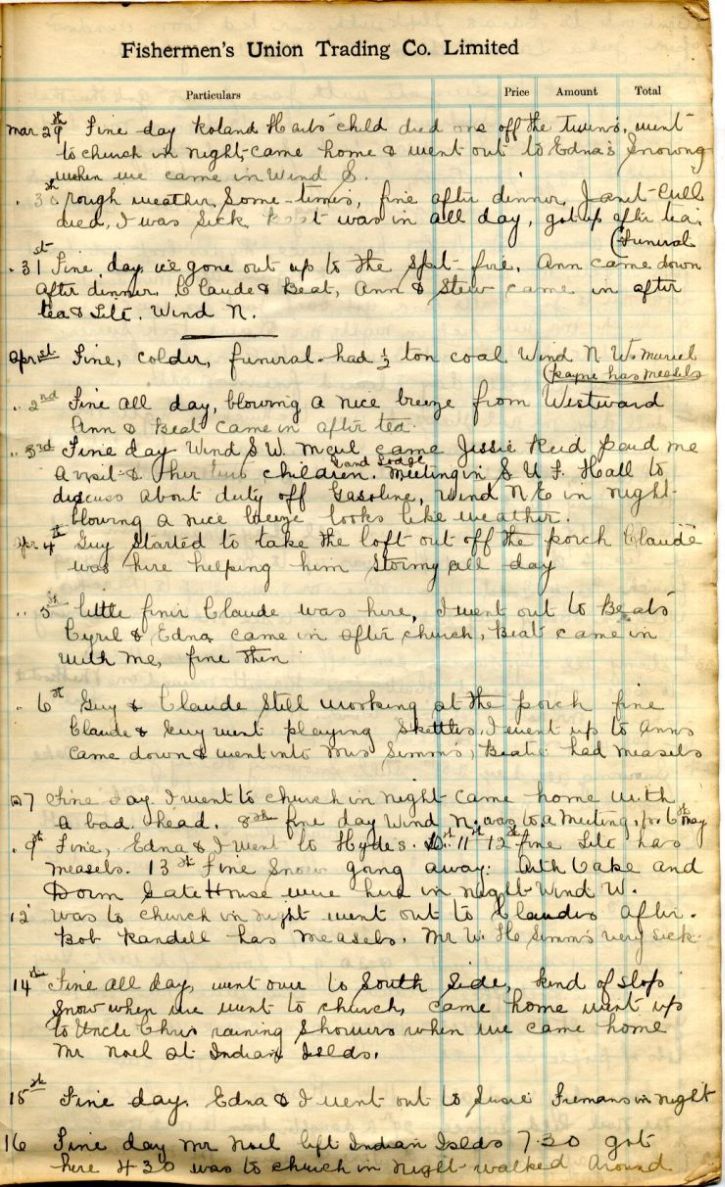 Fishermen's Union Trading Co. Limited
Particulars Price Amount Total
Mar 29th Fine day Roland child died one off the Twins, went
to church in night, came home & went out to Edna's Snowing
when we came in Wind S.
. 30th rough weather Some-times, fine after dinner, Janet Cull
died, I was Sick was in all day, got up after tea.
(Funeral
. 31st Fine day, we gone out up to the Spit-fire, Ann came down
after dinner. Claude & Beat, Ann & Stew came in after
tea & Silc. Wind N.
Apr 1st Fine, colder, funeral. had ½ ton coal Wind N W. Muriel
(Payne has measels
.. 2nd Fine all day, blowing a nice breeze from Westward
Ann & Beat came in after tea.
.. 3rd Fine day Wind S W. came Jessie Reid paid me
a visit & her two children. Meeting in S U F. Hall to
discuss about duty off Gasoline, Wind N E in night.
blowing a nice breeze looks like weather.
Apr 4th Guy Started to take the loft out off the porch Claude
was here helping him Stormy all day
.. 5th little finer Claude was here, I went out to Beats
Cyril & Edna came in after church, Beat came in
with me, fine then
. 6st Guy & Claude Still working at the porch fine
Claude & Guy went playing Skittles, I went up to Anns
came down & went into Mrs Simms, Beatie had measels
7 Fine day I went to church in night came home with
a bad head. 8th fine day Wind N, was to a Meeting, for 6st May
. 9st Fine, Edna & I went to Hydes. 10st 11st 12st fine Silc has
measels. 13st Fine Snow going away: Ruth Cake and
Dorm GateHouse were here in night Wind W.
12 was to church in night went out to Claudes after.
Bob Randell has measels, Mr W. He Simms very sick
14th Fine all day, went over to South Side, kind of slop
Snow when we went to church, came home went up
to Uncle Chris raining Showers when we came home
Mr Noel at Indian Islds.
15th Fine day. Edna & I went out to Susie Fremans in night
16 Fine day Mr Noel left Indian Islds 7-30 got
here 4 30 was to church in night walked around